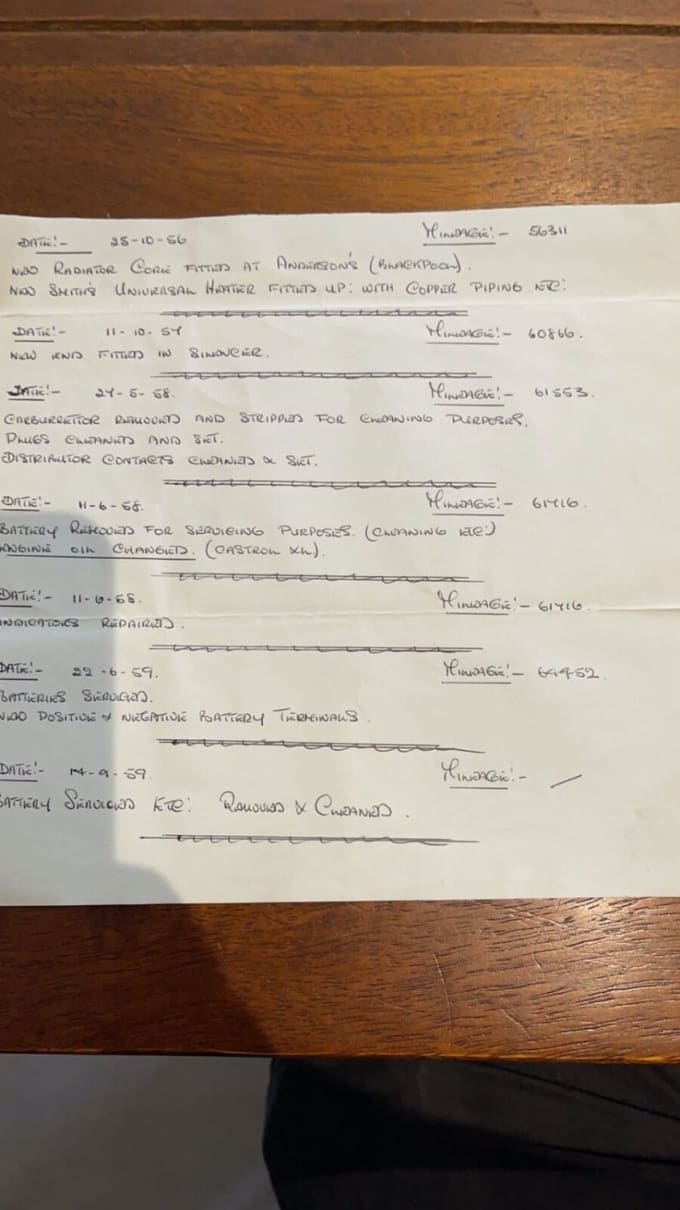 DATE:- 25-10-56 MILEAGE:- 56311
NEW RADIATOR CORE FITTED AT ANDERSON'S (BLACKPOOL).
NEW SMITH'S UNIVERSAL HEATER FITTED UP: WITH COPPER PIPING ETC:
DATE:- 11-10-57 MILEAGE:- 60866.
NEW END FITTED IN SILENCER.
DATE:- 27-5-58. MILEAGE:- 61553.
CARBURETTOR REMOVED AND STRIPPED FOR CLEANING PURPOSES.
PLUGS CLEANED AND SET.
DISTRIBUTOR CONTACTS CLEANED & SET.
DATE:- 11-6-58. MILEAGE:- 61716.
BATTERY REMOVED FOR SERVICING PURPOSES. (CLEANING ETC:)
ENGINE OIL CHANGED. (CASTROL XL).
DATE:- 11-6-58. MILEAGE:- 61716.
INDICATORS REPAIRED.
DATE:- 22-6-59. MILEAGE:- 64452.
BATTERIES SERVICED.
NEW POSITIVE & NEGATIVE BATTERY TERMINALS.
DATE:- 14-9-59. MILEAGE:- —
BATTERY SERVICED ETC: REMOVED & CLEANED.